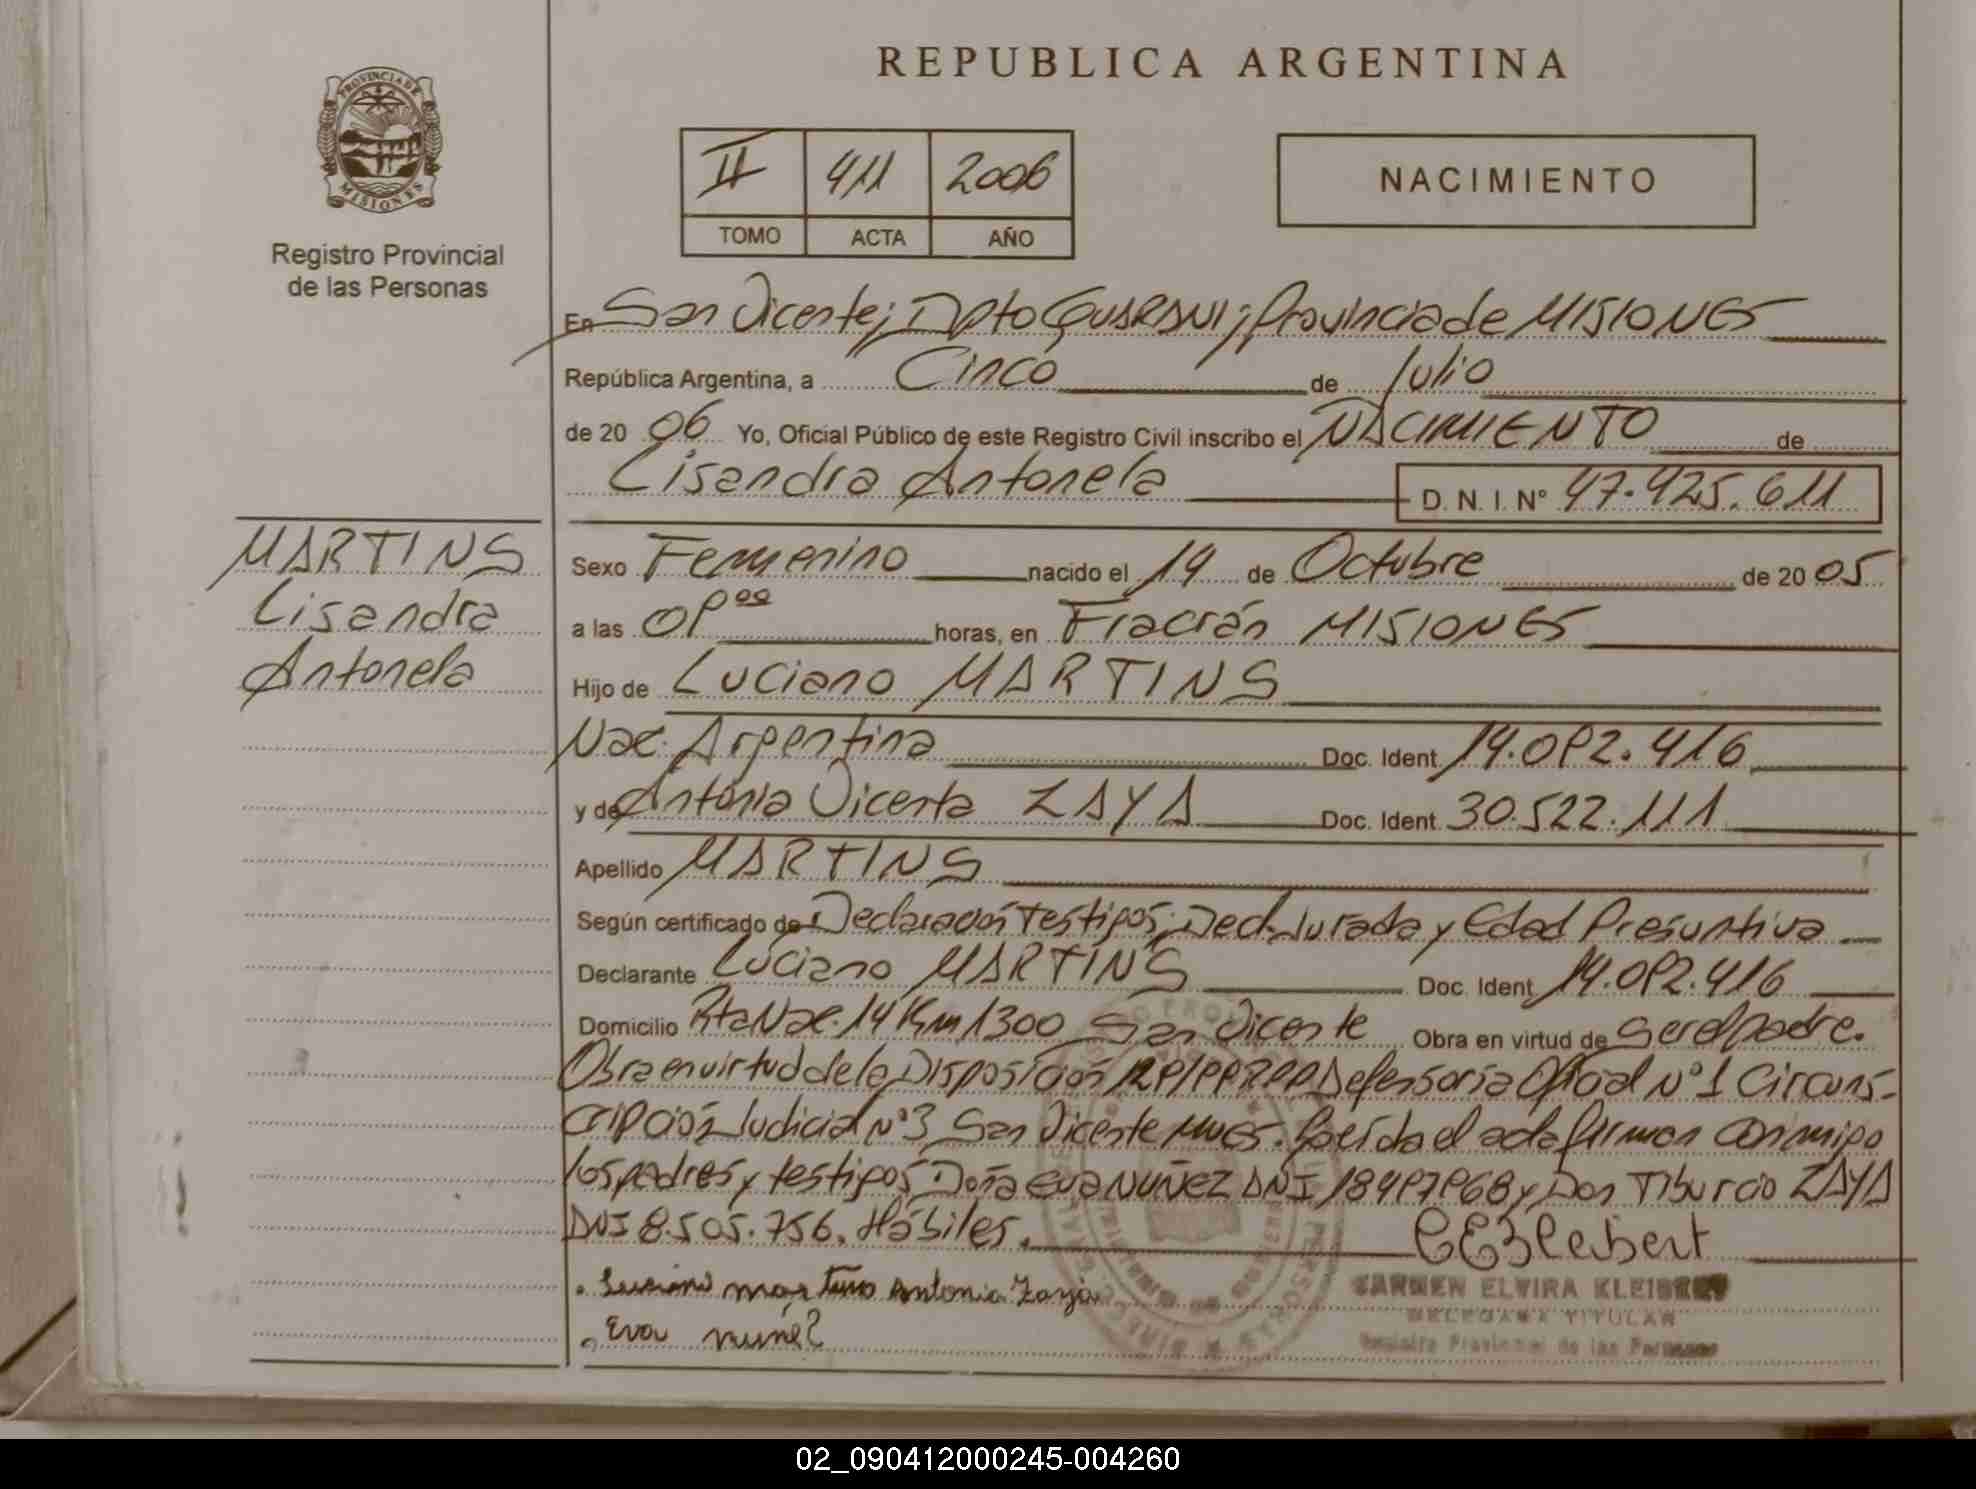 REPUBLICA ARGENTINA
PROVINCIA DE
MISIONES
Registro Provincial
de las Personas
II 411 2006
TOMO ACTA AÑO
NACIMIENTO
En San Vicente; Dpto GUARANI; Provincia de MISIONES
República Argentina, a Cinco de Julio
de 20 06 Yo, Oficial Público de este Registro Civil inscribo el NACIMIENTO de
Lisandra Antonela D. N. I. Nº 47.425.611
MARTINS
Lisandra
Antonela
Sexo Femenino nacido el 14 de Octubre de 20 05
a las horas, en Fracrán MISIONES
Hijo de Luciano MARTINS
Nac. Argentina Doc. Ident 14.092.416
y de Antonia Vicenta ZAYA Doc. Ident. 30.522.111
Apellido MARTINS
Según certificado de Declaración Testigos; Decl. Jurada y Edad Presuntiva
Declarante Luciano MARTINS Doc. Ident 14.092.416
Domicilio Rta Nac. 14 Km 1300 San Vicente Obra en virtud de ser el padre.
Obra en virtud de la Disposición Defensoría Oficial Nº 1 Circuns-
cripción Judicial Nº 3 San Vicente Mnes. Leída el acta firman conmigo
los padres y testigos Doña Eva NUÑEZ DNI y Don Tiburcio ZAYA
DNI 8.505.756. Hábiles.
CEKleibert
Luciano Martins Antonia Zaya
CARMEN ELVIRA KLEIBERT
DELEGADA TITULAR
Eva nuñez
Registro Provincial de las Personas
02_090412000245-004260